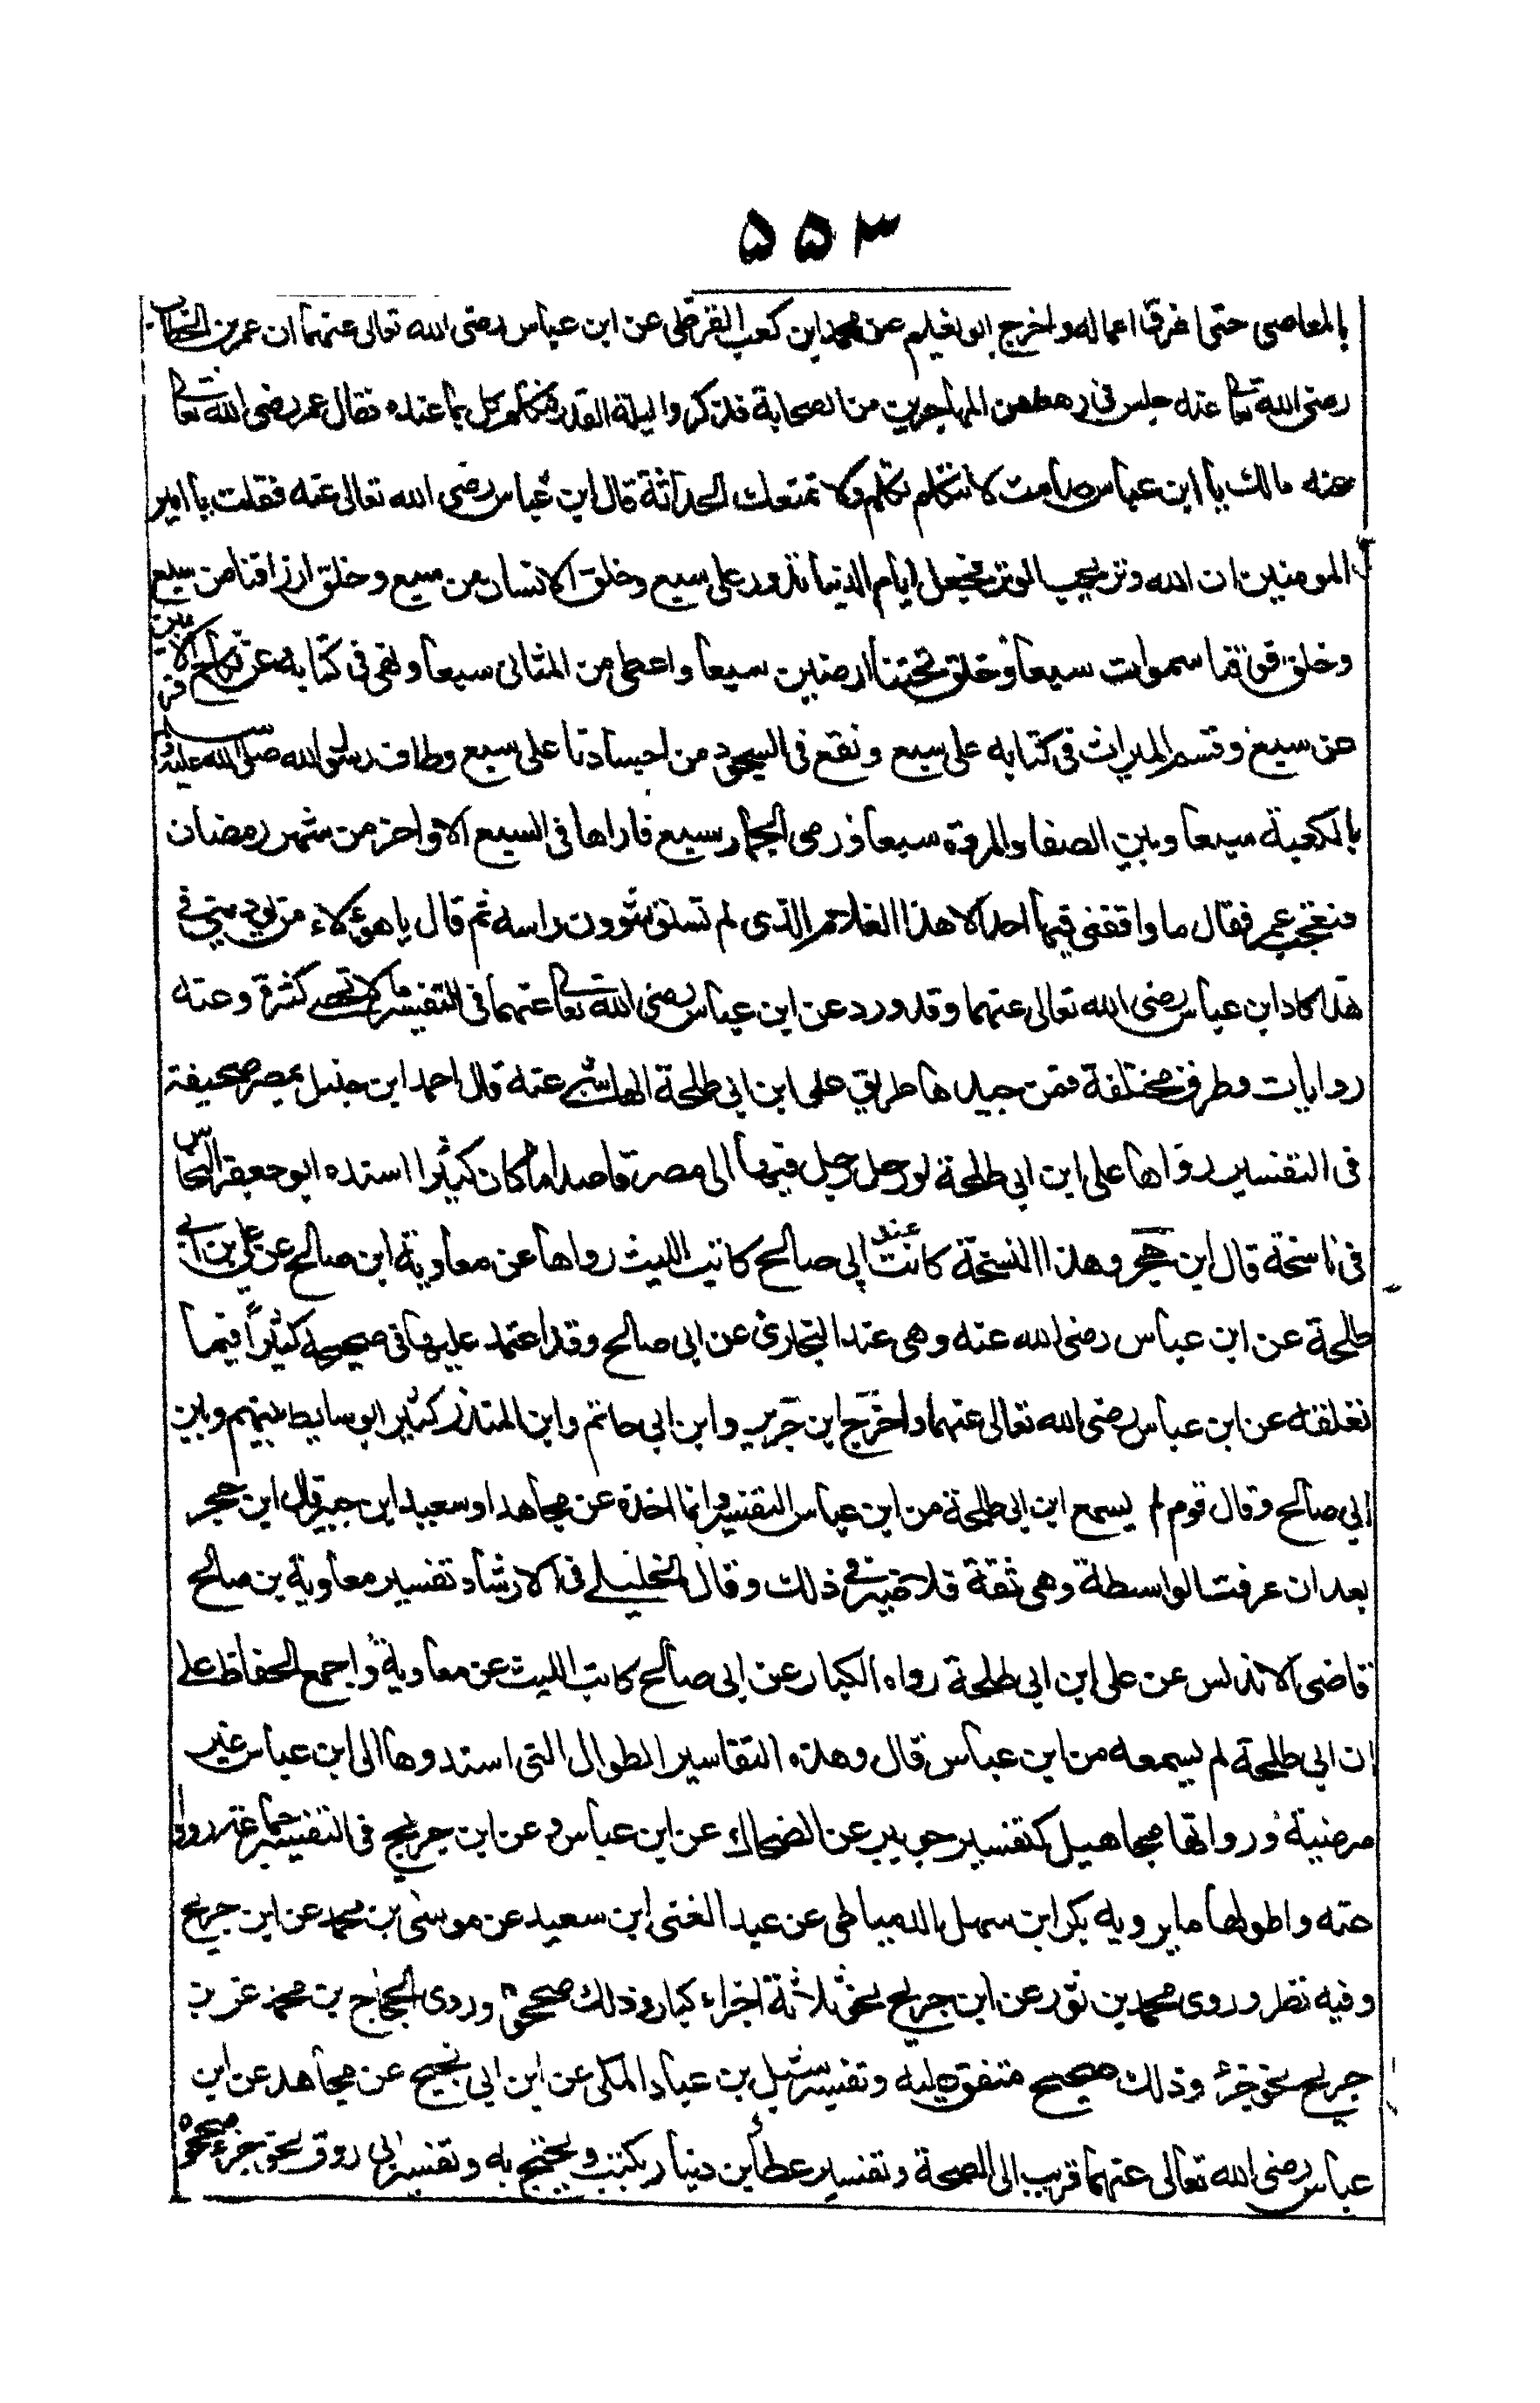 ۵۵۳
بالمعاصى حتى اغرق اعماله واخرج ابو نعيم عن محمد ابن كعب القرظى عن ابن عباس رضى الله تعالى عنهما ان عمر بن الخطاب
رضى الله تعا عنه جلس فى رهط من المهاجرين من الصحابة فذكروا ليلة القدر فتكلم كل بما عنده فقال عمر رضى الله تعا
عنه مالك يا ابن عباس صامت لا تتكلم تكلم ولا تمنعك الحداثة قال ابن عباس رضى الله تعالى عنه فقلت يا امير
المومنين ان الله وتر يحب الوتر فجعل ايام الدنيا تدور على سبع وخلق الانسان من سبع وخلق ارزاقنا من سبع
وخلق فوقنا سموات سبعا وخلق تحتنا ارضين سبعا واعطى من المثانى سبعا ونهى فى كتابه عن نكاح الاقربين
عن سبع وقسم الميراث فى كتابه على سبع ونقع فى السجود من اجسادنا على سبع وطاف رسول الله صلى الله عليه وسلم
بالكعبة سبعا وبين الصفا والمروة سبعا ورمى الجمار بسبع فاراها فى السبع الاواخر من شهر رمضان
فتعجب عمر فقال ما وافقنى فيها احد الا هذا الغلام الذى لم تستو شوون راسه ثم قال يا هؤلاء من يوديني في
هذا كاداء ابن عباس رضى الله تعالى عنهما وقد ورد عن ابن عباس رضى الله تعا عنهما فى التفسير ما لا تحصى كثرة وعنه
روايات وطرق مختلفة فمن جيدها طريق على ابن ابى طلحة الهاشمى عنه قال احمد ابن حنبل بمصر صحيفة
فى التفسير رواها على ابن ابى طلحة لو رحل رجل فيها الى مصر قاصدا ما كان كثيرا اسنده ابو جعفر النحاس
فى ناسخة قال ابن حجر وهذا النسخة كانت عند ابى صالح كاتب الليث رواها عن معاوية ابن صالح عن على بن ابى
طلحة عن ابن عباس رضى الله عنه وهى عند البخارى عن ابى صالح وقد اعتمد عليها فى صحيحه كثيراً فيما
نعلقه عن ابن عباس رضى الله تعالى عنهما واخرج ابن جرير وابن ابى حاتم وابن المنذر كثير ابو سايط بينهم وبين
ابى صالح وقال قوم لم يسمع ابن ابى طلحة من ابن عباس التفسير وانما اخذه عن مجاهد او سعيد ابن جبير قال ابن حجر
بعد ان عرفت الواسطة وهى ثقة فلا ضير فى ذلك وقال الخليلى فى الارشاد تفسير معاوية بن صالح
قاضى الاندلس عن على ابن ابى طلحة رواه الكبار عن ابى صالح كاتب الليث عن معاوية واجمع الحفاظ على
ان ابى طلحة لم يسمعه من ابن عباس قال وهذه التفاسير الطوال التى اسندوها الى ابن عباس غير
مرضية ورواتها مجاهيل كتفسير جويبر عن الضحاك عن ابن عباس وعن ابن جريج فى التفسير جماعة رووا
عنه واطولها ما يرويه بكر ابن سهل الدمياطى عن عبد الغنى ابن سعيد عن موسى بن محمد عن ابن جريج
وفيه نظر وروى محمد بن ثور عن ابن جريج نحو ثلاثة اجزاء كبار وذلك صححوه وروى الحجاج بن محمد عن بن
جريج نحو جزء وذلك صحيح متفق عليه وتفسير شبل بن عباد المكى عن ابن ابى نجيح عن مجاهد عن ابن
عباس رضى الله تعالى عنهما قريب الى الصحة وتفسير عطاء بن دينار يكتب ويحتج به وتفسير ابى روق نحو جزء صححوه